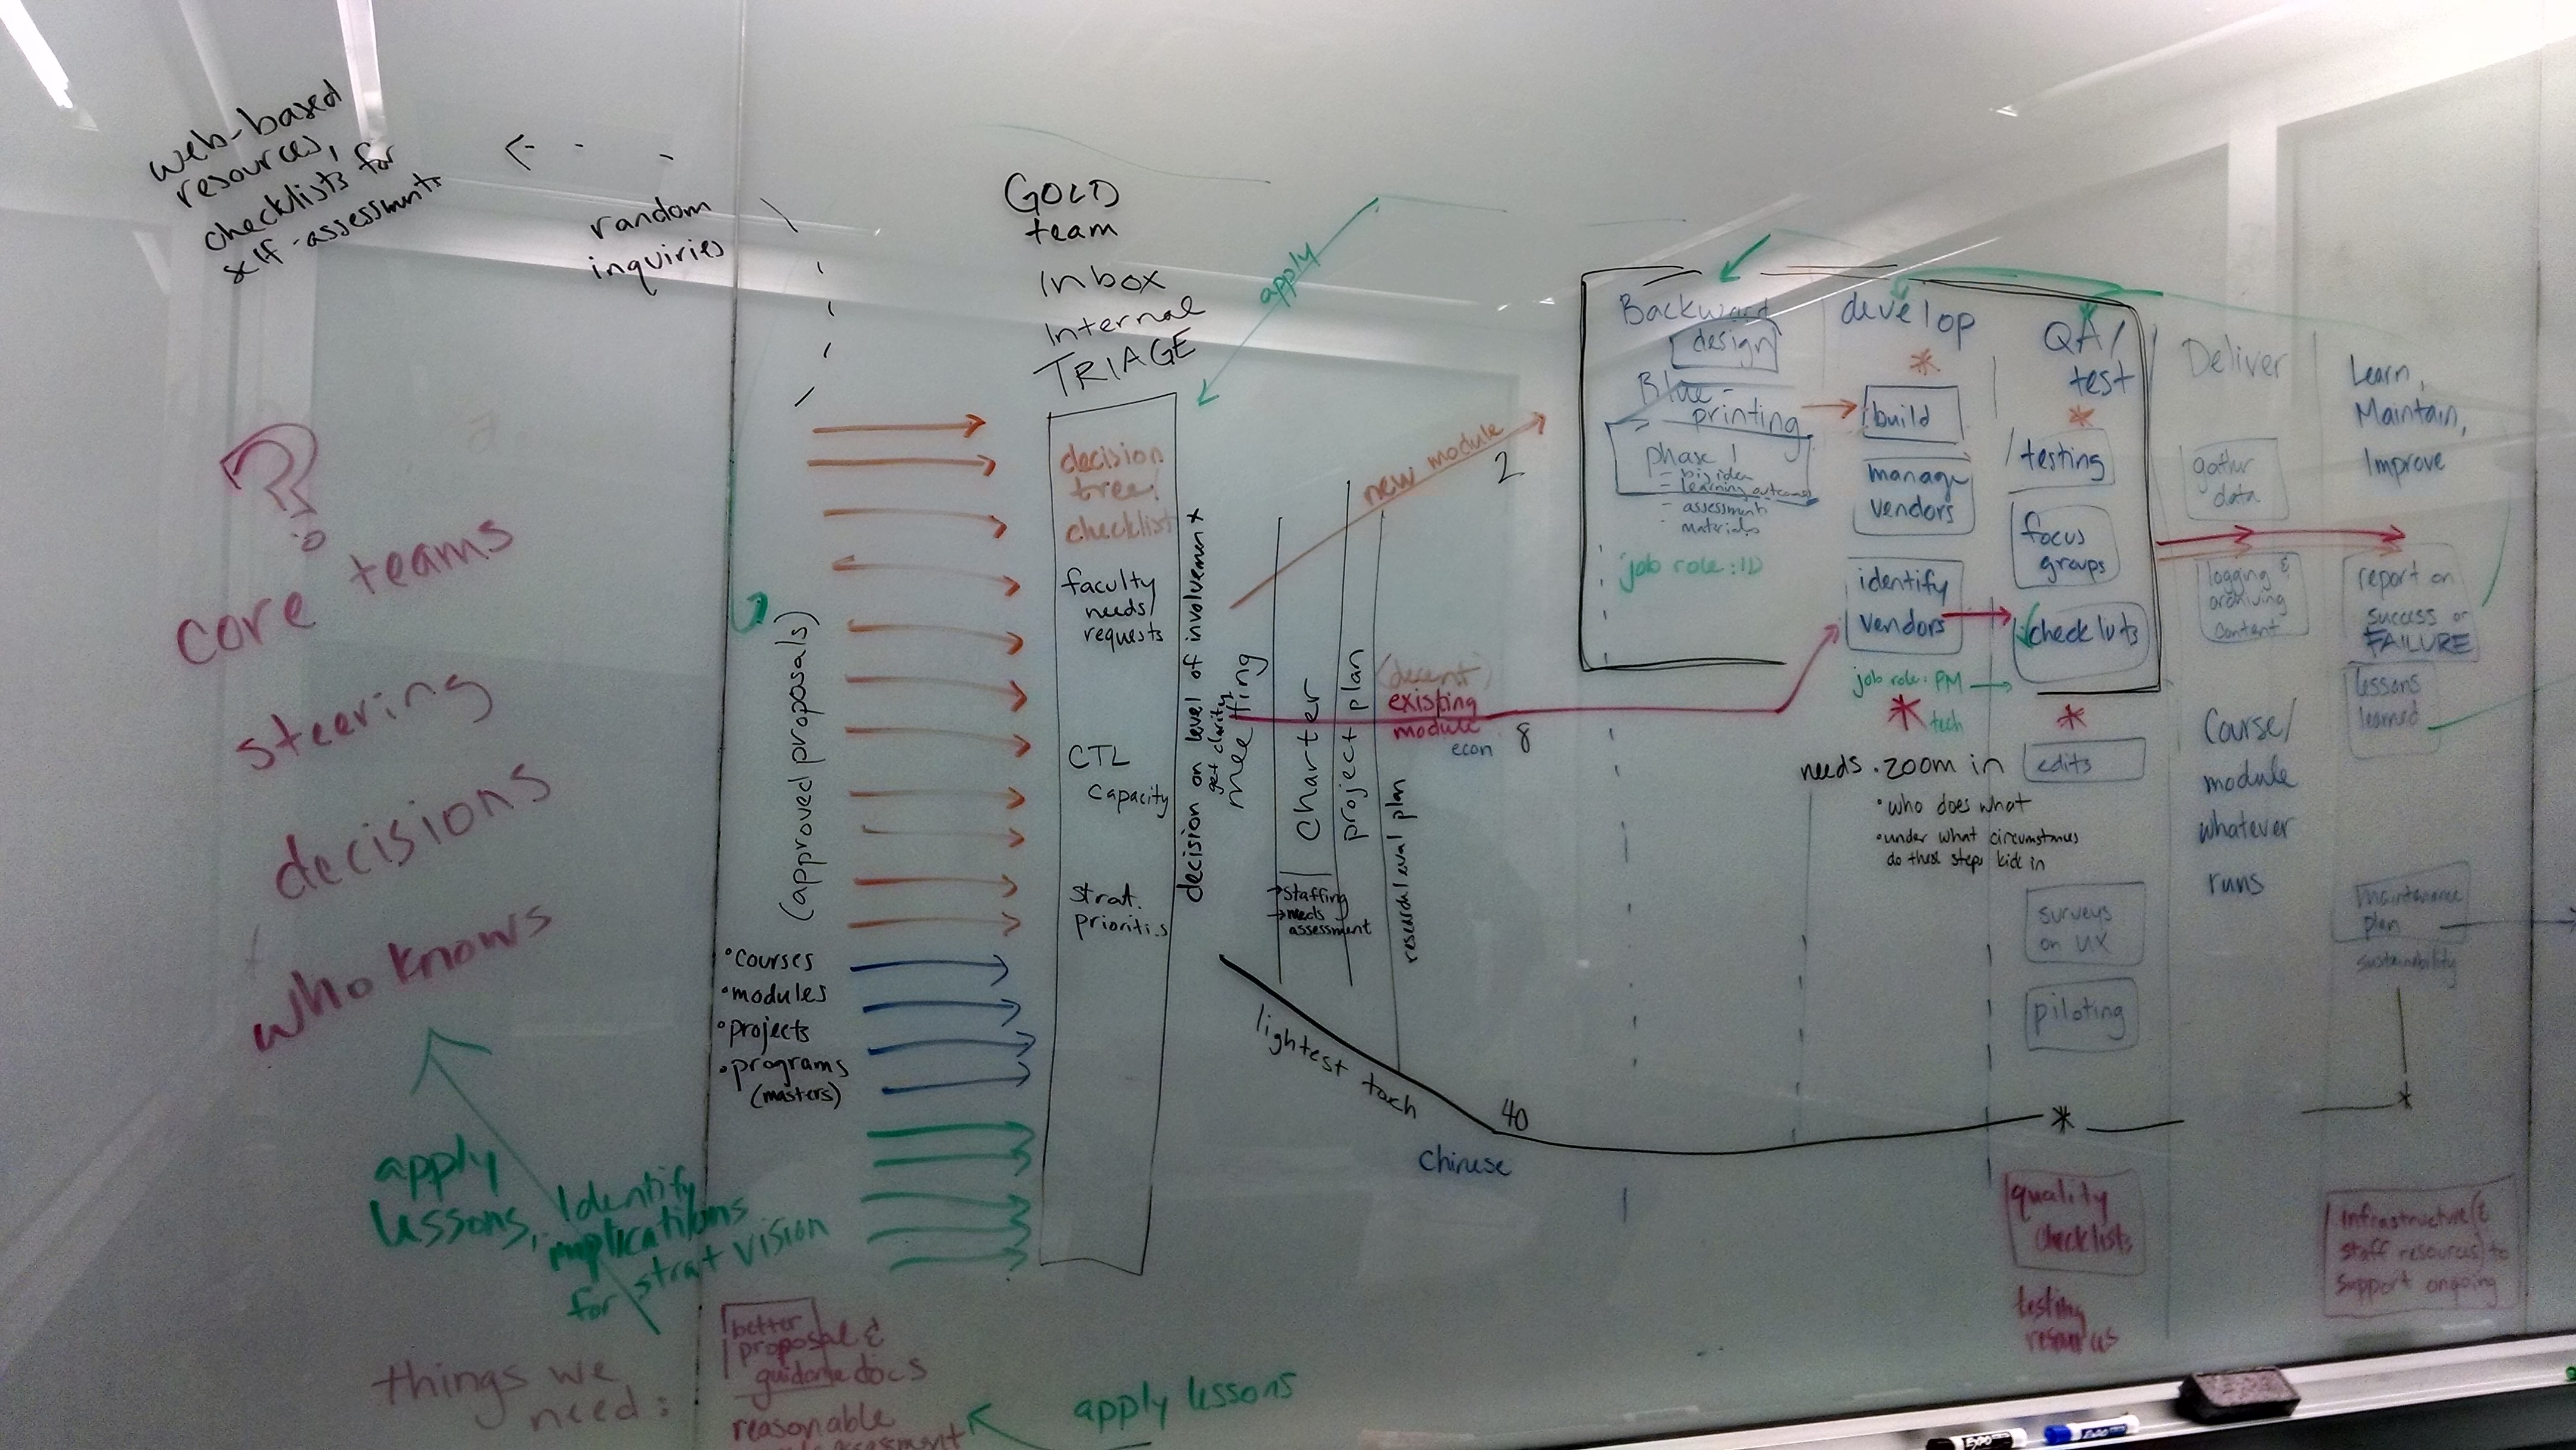 web-based
resources,
checklists for
self-assessments
random
inquiries
GOLD
team
Inbox
Internal
TRIAGE
apply
?
core teams
steering
decisions
who knows
apply
lessons,
Identify
implications
for strat vision
things we
need:
better
proposal &
guidance docs
reasonable
apply lessons
(approved proposals)
•courses
•modules
•projects
•programs
(masters)
decision
tree/
checklist
faculty
needs/
requests
CTL
capacity
strat.
priorities
decision on level of involvement
get clarity
meeting
Charter
→staffing
→needs
assessment
project plan
research/eval plan
new module
2
(decent)
existing
module
econ
8
lightest touch
40
Chinese
Backward
design
Blue-
printing
phase 1
- big idea
- learning outcomes
- assessments
- materials
job role: ID
develop
*
build
manage
vendors
identify
vendors
job role: PM
* tech
needs .zoom in
•who does what
•under what circumstances
do these steps kick in
QA/
test
*
testing
focus
groups
checklists
*
edits
surveys
on UX
piloting
*
quality
checklists
testing
resources
Deliver
gather
data
logging &
archiving
content
Course/
module
whatever
runs
Learn,
Maintain,
Improve
report on
success or
FAILURE
lessons
learned
maintenance
plan
sustainability
*
infrastructure (&
staff resources) to
support ongoing